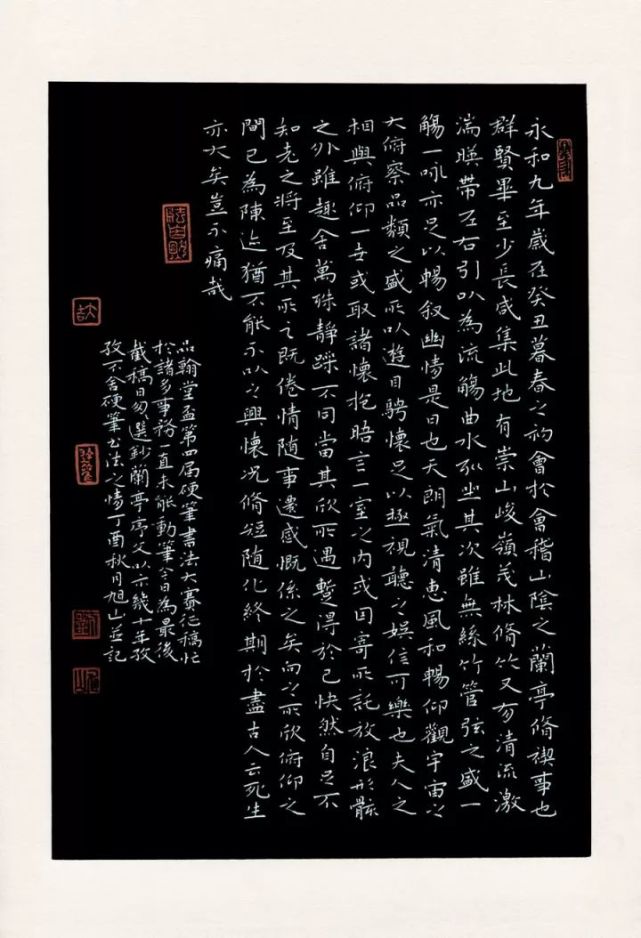 永和九年歲在癸丑暮春之初會於會稽山陰之蘭亭脩禊事也
群賢畢至少長咸集此地有崇山峻嶺茂林脩竹又有清流激
湍暎帶左右引以為流觴曲水列坐其次雖無絲竹管弦之盛一
觴一詠亦足以暢叙幽情是日也天朗氣清惠風和暢仰觀宇宙之
大俯察品類之盛所以遊目騁懷足以極視聽之娛信可樂也夫人之
相與俯仰一世或取諸懷抱晤言一室之內或因寄所託放浪形骸
之外雖趣舍萬殊靜躁不同當其欣所遇暫得於己快然自足不
知老之將至及其所之既倦情隨事遷感慨係之矣向之所欣俯仰之
間已為陳迹猶不能不以之興懷況脩短隨化終期於盡古人云死生
亦大矣豈不痛哉
品翰堂盃第四屆硬筆書法大賽征稿忙
於諸多事務一直未能動筆今日為最後
截稿日匆選鈔蘭亭序文以示幾十年孜
孜不舍硬筆書法之情丁酉秋月旭山並記